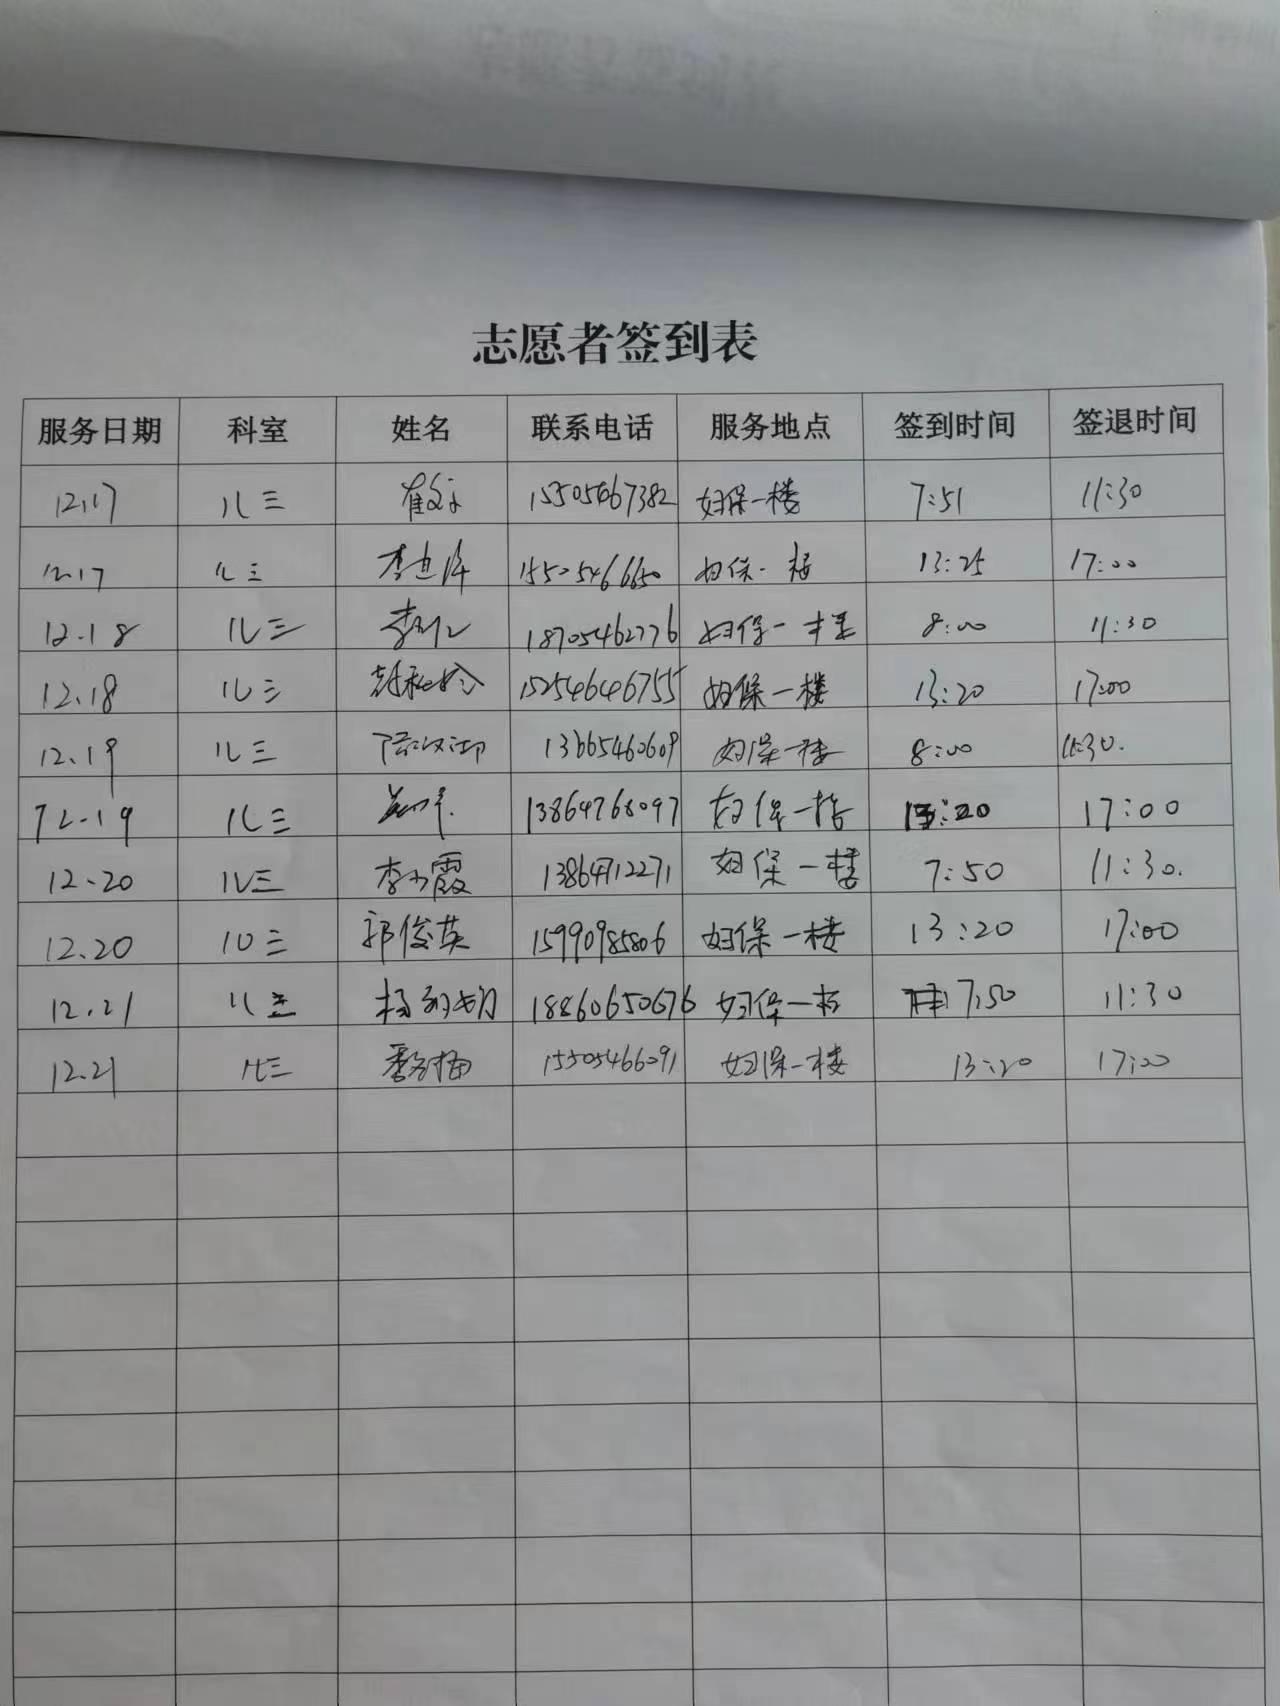 志愿者签到表
服务日期 科室 姓名 联系电话 服务地点 签到时间 签退时间
12.17 儿三 15505467382 妇保一楼 7:51 11:30
12.17 儿三 李 15505466650 妇保一楼 13:25 17:00
12.18 儿三 李 18705462776 妇保一楼 8:00 11:30
12.18 儿三 15254646755 妇保一楼 13:20 17:00
12.19 儿三 13665460609 妇保一楼 8:00 11:30.
12.19 儿三 13864768097 妇保一楼 13:20 17:00
12.20 儿三 李小霞 13864712271 妇保一楼 7:50 11:30.
12.20 儿三 郭俊英 15990985806 妇保一楼 13:20 17:00
12.21 儿三 杨 18860650676 妇保一楼 7:50 11:30
12.21 儿三 15505466091 妇保一楼 13:20 17:00